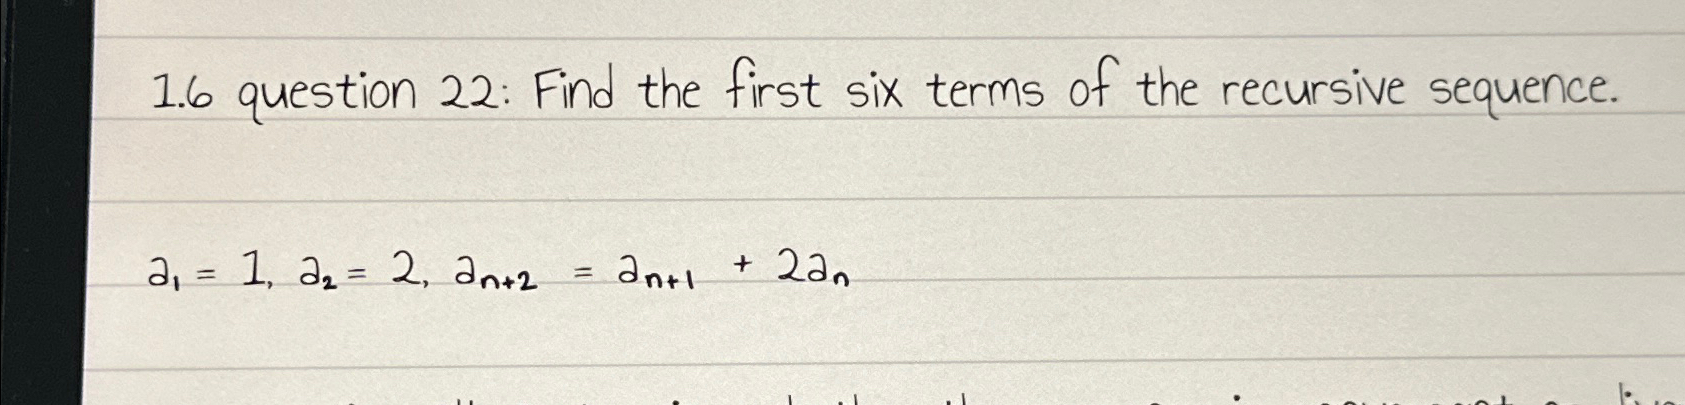 1.6 question 22: Find the first six terms of the recursive sequence.
a₁ = 1, a₂ = 2, aₙ₊₂ = aₙ₊₁ + 2aₙ